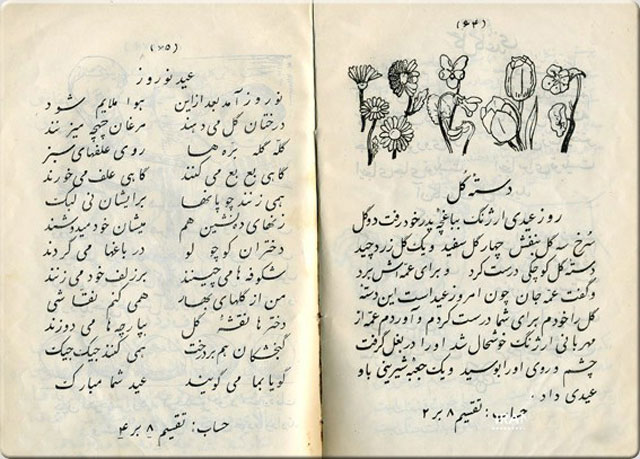 (۶۴)
دسته گل
روز عیدی ارژنگ بباغچهٔ پدر خود رفت دو گل
سرخ سه گل بنفش چهار گل سفید و یک گل زرد چید
دسته گل کوچکی درست کرد و برای عمه‌اش برد
و گفت عمه جان چون امروز عید است این دسته
گل را خودم برای شما درست کردم و آوردم عمه از
مهربانی ارژنگ خوشحال شد او را در بغل گرفت
چشم و روی او را بوسید و یک جعبه شیرینی باو
عیدی داد .
حساب: تقسیم ۸ بر ۲
(۶۵)
عید نوروز
نوروز آمد بعد از این هوا ملایم شود
درختان گل می دهند مرغان چهچه میزنند
گله گله بره ها روی علفهای سبز
گاهی بع بع می کنند گاهی علف می خورند
همی زنند چوپانها برایشان نی لبک
زنهای دلنشین هم میشان خود میدوشند
دختران کوچولو در باغها می گردند
شکوفه ها می چینند بر زلف خود می زنند
من از گلهای بهار همی کنم نقاشی
دخترها نقشهٔ گل بپارچه‌ها می دوزند
گنجشکان هم بر درخت همی کنند جیک جیک
گویا بما می گویند عید شما مبارک
حساب: تقسیم ۸ بر ۴